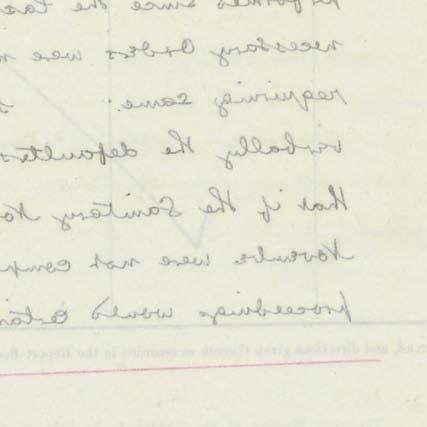 since the las
necessary Orders were
requiring same."
verbally the defaulters
that if the Sanitary No
November were not comp
proceedings would certain
and directions given thereon as recorded in the Report Bo